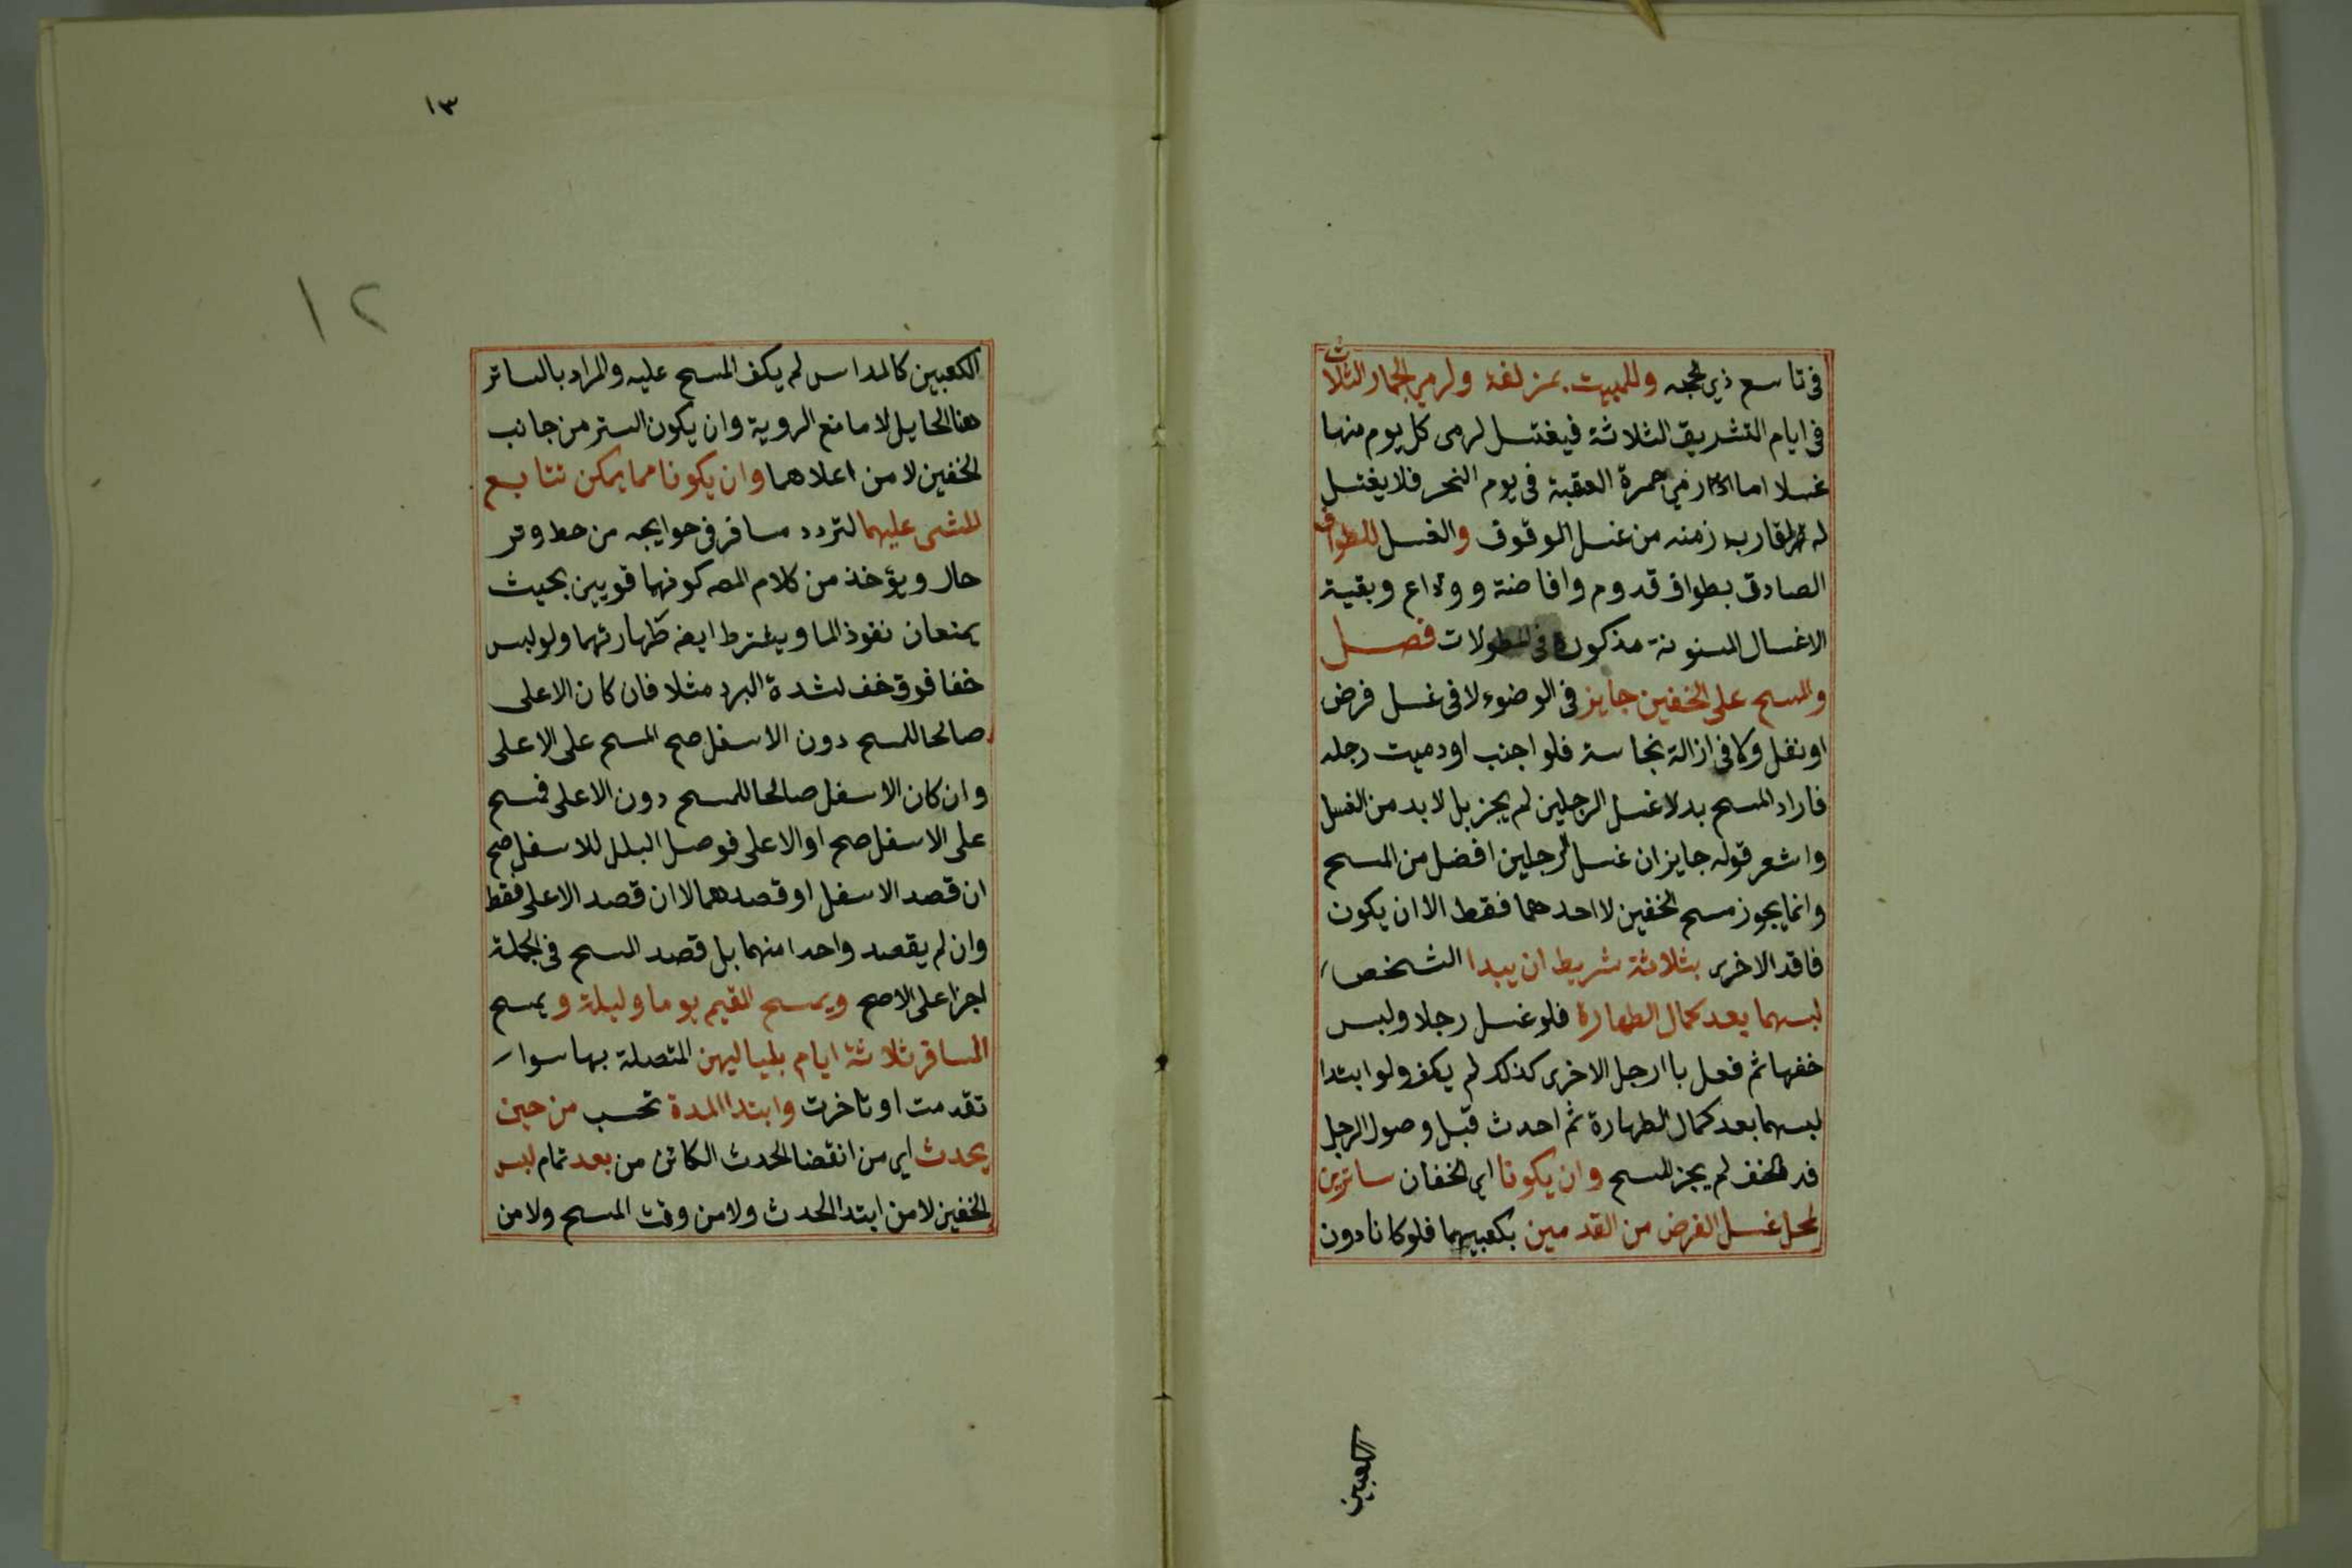 في تاسع ذي الحجه وللمبيت بمزلفة ولرمي الجمار الثلاث
في ايام التشريق الثلاثة فيغتسل لرمى كل يوم منها
غسلا اما رمي جمرة العقبة في يوم النحر فلا يغتسل
له لقرب زمنه من غسل الوقوف والغسل للطواف
الصادق بطواف قدوم وافاضة ووداع وبقية
الاغسال المسنونة مذكورة في المطولات فصل
والمسح على الخفين جايز في الوضوء لا في غسل فرض
او نفل ولا في ازالة نجاسة فلو اجنب او دميت رجله
فاراد المسح بدلا غسل الرجلين لم يجز بل لا بد من الغسل
واشعر قوله جايز ان غسل الرجلين افضل من المسح
وانما يجوز مسح الخفين لا احدهما فقط الا ان يكون
فاقد الاخرى بثلاثة شريط ان يبدا الشخص
لبسهما بعد كمال الطهارة فلو غسل رجلا ولبس
خفها ثم فعل باارجل الاخرى كذلك لم يكف ولو ابتدا
لبسهما بعد كمال الطهارة ثم احدث قبل وصول الرجل
قدم الخف لم يجز المسح وان يكونا اي الخفان ساترين
لمحل غسل الفرض من القدمين بكعبيهما فلو كانا دون
الكعبين
١٣
١٢
الكعبين كالمداس لم يكف المسح عليه والمراد بالساتر
هنا الحايل لا مانع الروية وان يكون الستر من جانب
الخفين لا من اعلاهما وان يكونا مما يمكن تتابع
المشى عليهما لتردد مسافر في حوايجه من حط وتر
حال ويؤخذ من كلام المصه كونهما قويين بحيث
يمنعان نفوذ الما ويشترط ايضه طهارتهما ولو لبس
خفا فوق خف لشدة البرد مثلا فان كان الاعلى
صالحا للمسح دون الاسفل صح المسح على الاعلى
وان كان الاسفل صالحا للمسح دون الاعلى فمسح
على الاسفل صح او الاعلى فوصل البلل للاسفل صح
ان قصد الاسفل او قصدهما لا ان قصد الاعلى فقط
وان لم يقصد واحدا منهما بل قصد المسح في الجملة
اجزا على الاصح ويمسح المقيم يوما وليلة ويمسح
المسافر ثلاثة ايام بلياليهن المتصلة بها سوا
تقدمت او تاخرت وابتدا المدة تحسب من حين
يحدث اي من انقضا الحدث الكائن من بعد تمام لبس
الخفين لا من ابتدا الحدث ولا من وقت المسح ولا من